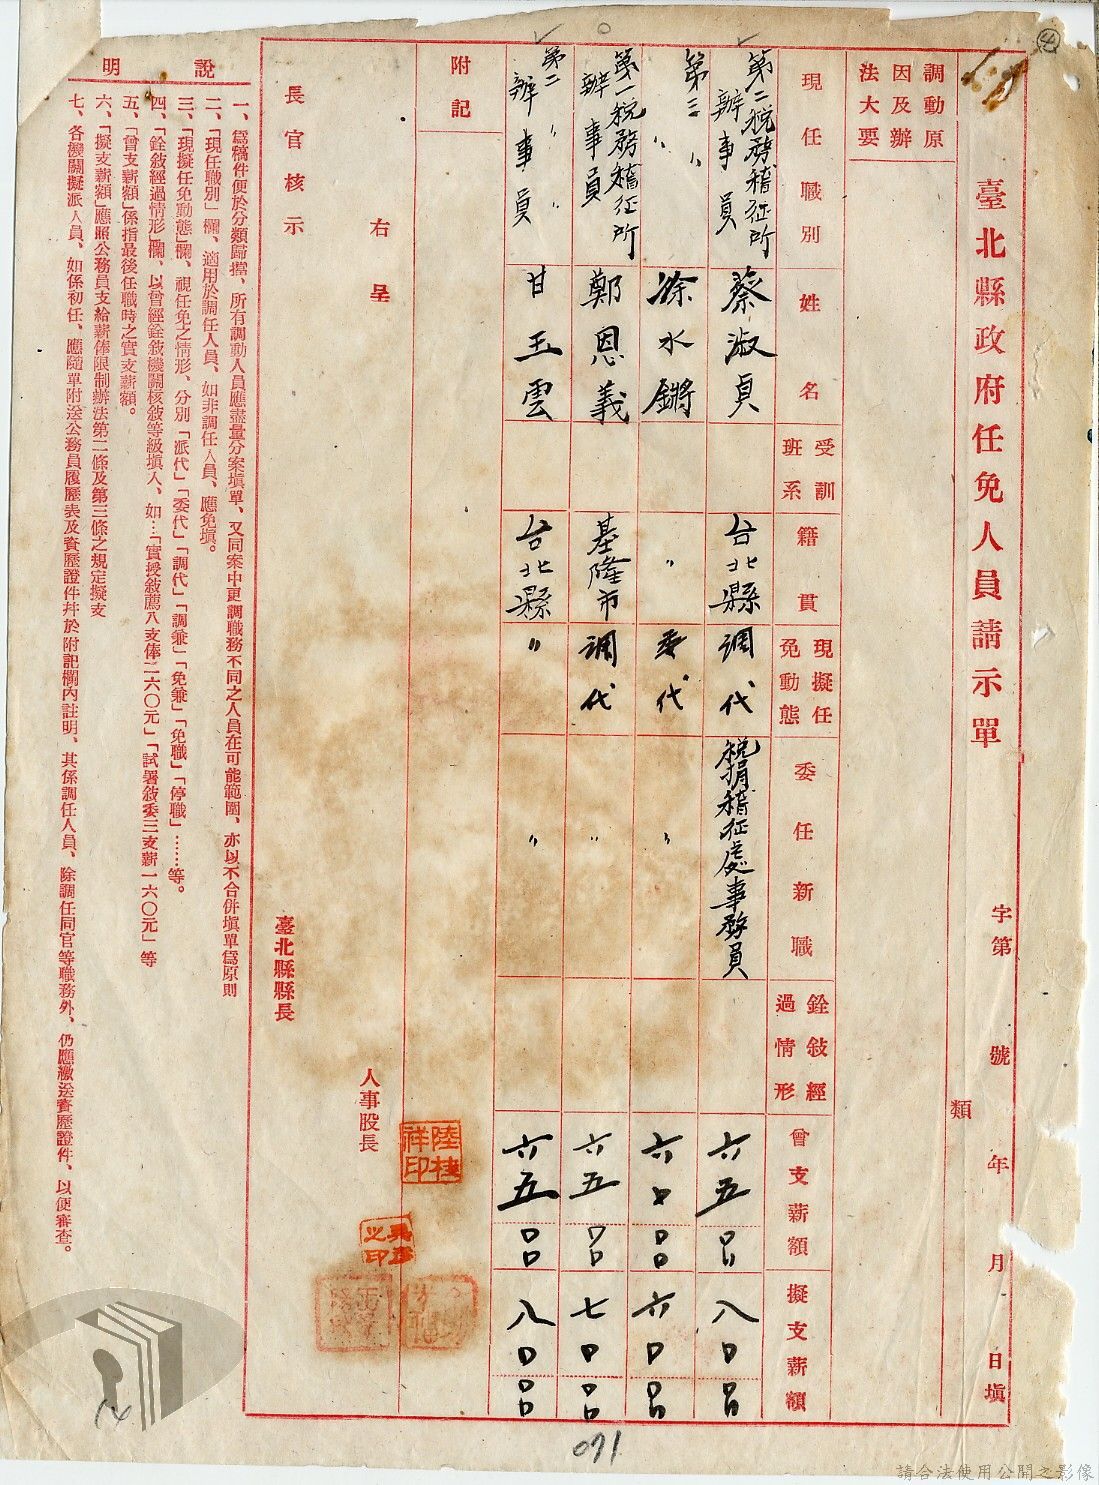 臺北縣政府任免人員請示單
字第　號　年　月　日塡
類
調動原因及辦法大要
現任職別
姓名
受訓班系
籍貫
現擬任免動態
委任新職
銓敍經過情形
曾支薪額
擬支薪額
第二稅務稽征所辦事員　蔡淑貞　台北縣　調代　稅捐稽征處事務員　六五00　八000
第三〃〃　涂水鏘　〃　委代　〃　六000　六000
第一稅務稽征所辦事員　鄭恩義　基隆市　調代　〃　六五00　七000
第二〃〃辦事員　甘玉雲　台北縣　〃　〃　六五00　八000
附記
右呈
人事股長
陸桂祥印
長官核示
臺北縣縣長
說明
一、爲稿件便於分類歸擋、所有調動人員應盡量分案塡單、又同案中更調職務不同之人員在可能範圍、亦以不合併塡單爲原則
二、「現任職別」欄、適用於調任人員、如非調任人員、應免塡。
三、「現擬任免動態」欄、視任免之情形、分別「派代」「委代」「調代」「調兼」「免兼」「免職」「停職」……等。
四、「銓敍經過情形」欄、以曾經銓敍機關核敍等級塡入、如…「實授敍薦八支俸二六〇元」「試署敍委三支薪一六〇元」等
五、「曾支薪額」係指最後任職時之實支薪額。
六、「擬支薪額」應照公務員支給薪俸限制辦法第二條及第三條之規定擬支
七、各機關擬派人員、如係初任、應隨單附送公務員履歷表及資歷證件幷於附記欄內註明、其係調任人員、除調任同官等職務外、仍應繳送資歷證件、以便審查。
4
14
071
請合法使用公開之影像